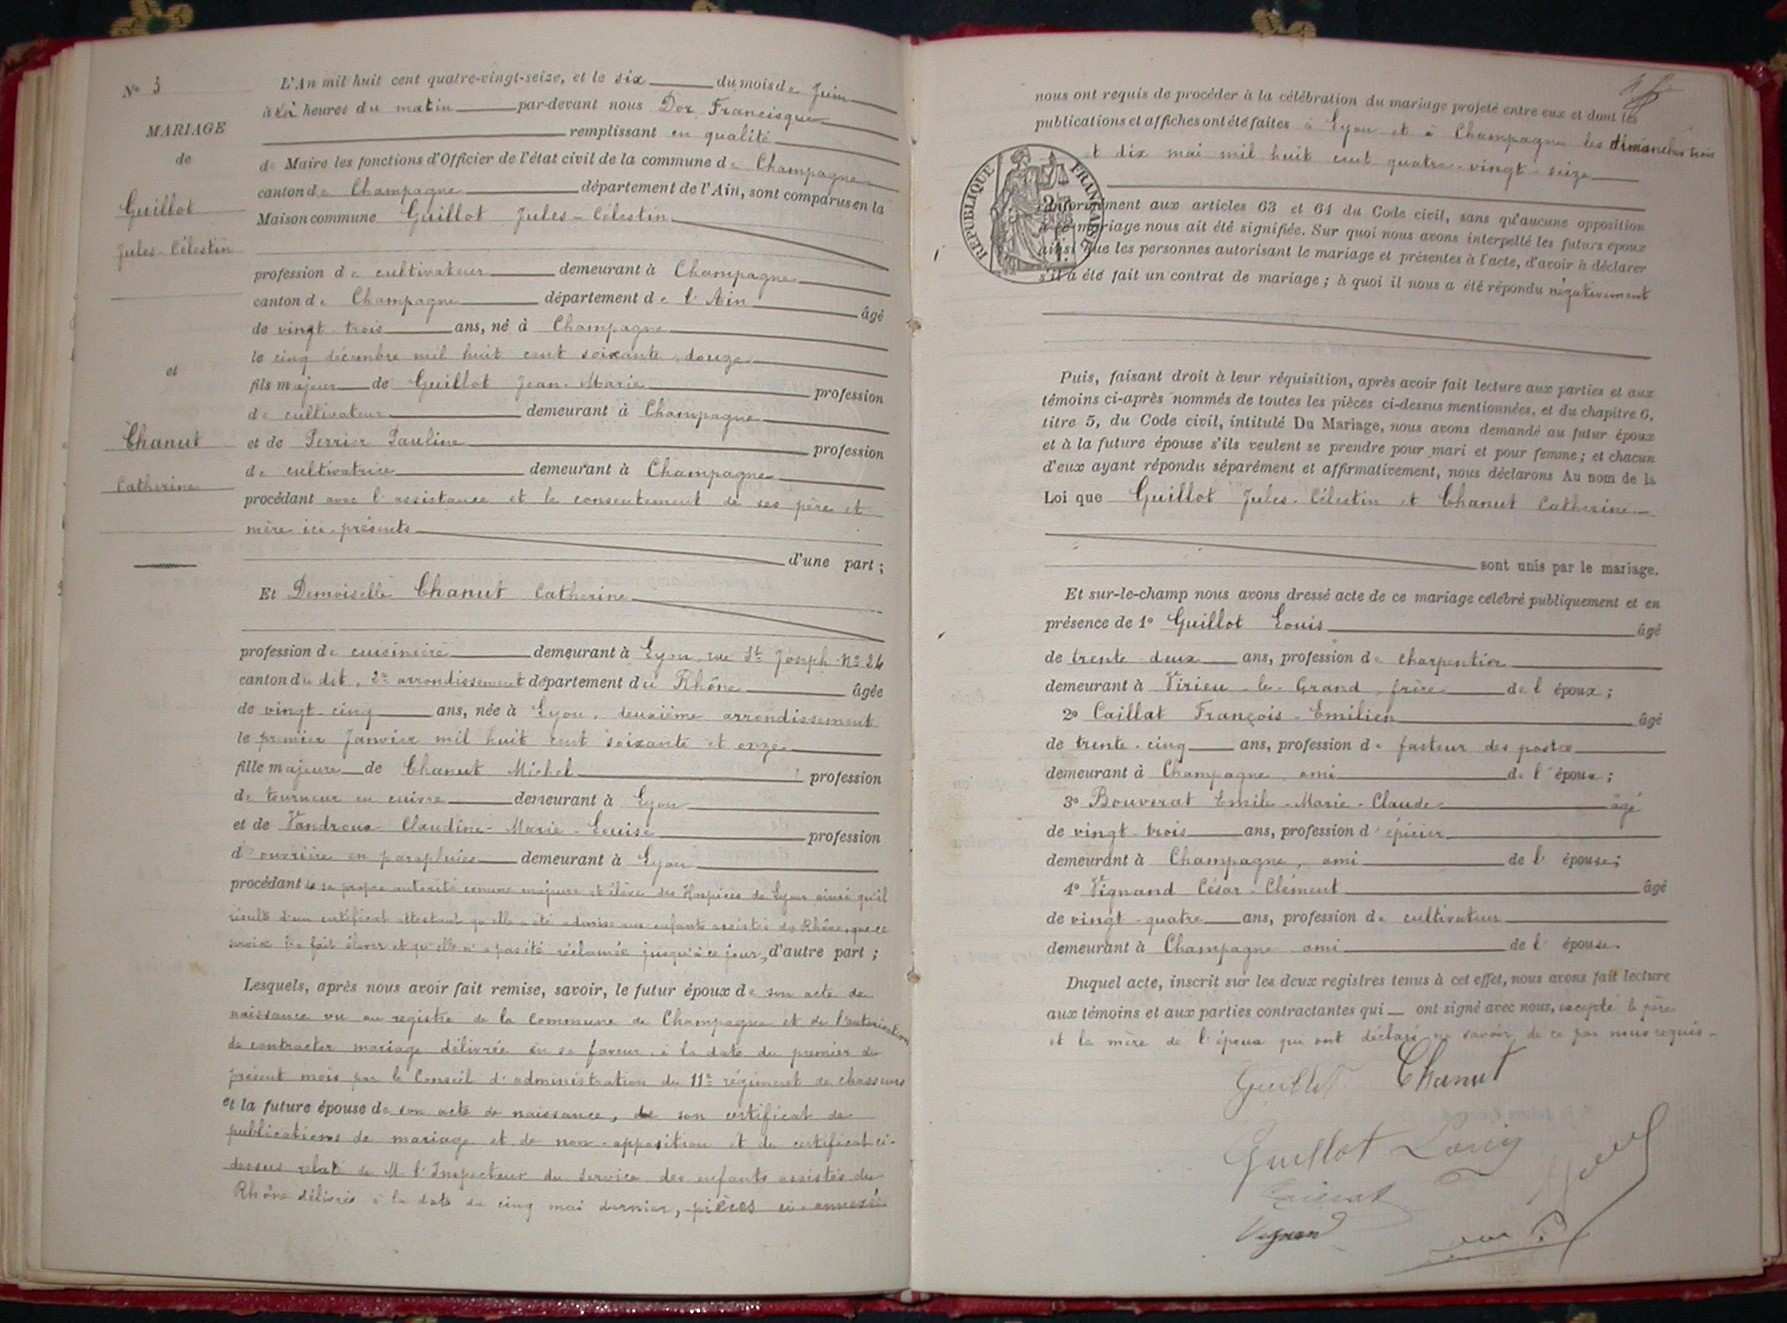 N° 3
MARIAGE
de
Guillot
Jules-Célestin
et
Chanut
Catherine
L'An mil huit cent quatre-vingt-seize, et le six du mois de Juin
à dix heures du matin par-devant nous Dor Francisque
remplissant en qualité
de Maire les fonctions d'Officier de l'état civil de la commune de Champagne
canton de Champagne département de l'Ain, sont comparus en la
Maison commune Guillot Jules-Célestin
profession de cultivateur demeurant à Champagne
canton de Champagne département de l'Ain âgé
de vingt-trois ans, né à Champagne
le cinq décembre mil huit cent soixante-douze
fils majeur de Guillot Jean-Marie profession
de cultivateur demeurant à Champagne
et de Perrier Pauline profession
de cultivatrice demeurant à Champagne
procédant avec l'assistance et le consentement de ses père et
mère ici présents
d'une part;
Et Demoiselle Chanut Catherine
profession de cuisinière demeurant à Lyon, rue St Joseph N° 26
canton du dit, 2e arrondissement département du Rhône âgée
de vingt-cinq ans, née à Lyon, deuxième arrondissement
le premier Janvier mil huit cent soixante et onze
fille majeure de Chanut Michel profession
de tourneur en cuivre demeurant à Lyon
et de Vandroux Claudine-Marie-Louise profession
d'ouvrière en parapluies demeurant à Lyon
procédant de sa propre autorité comme majeure et élève des Hospices de Lyon ainsi qu'il
résulte d'un certificat attestant qu'elle a été admise aux enfants assistés du Rhône, que ce
service l'a fait élever et qu'elle n'a pas été réclamée jusqu'à ce jour, d'autre part;
Lesquels, après nous avoir fait remise, savoir, le futur époux de son acte de
naissance vu au registre de la Commune de Champagne et de l'autorisation
de contracter mariage délivrée en sa faveur à la date du premier du
présent mois par le Conseil d'administration du 11e régiment de chasseurs
et la future épouse de son acte de naissance, de son certificat de
publications de mariage et de non-opposition et du certificat ci-
dessus relaté de M. l'Inspecteur du Service des enfants assistés du
Rhône délivrés à la date du cinq mai dernier, pièces ci-annexées
nous ont requis de procéder à la célébration du mariage projeté entre eux et dont les
publications et affiches ont été faites à Lyon et à Champagne les dimanches trois
et dix mai mil huit cent quatre-vingt-seize
RÉPUBLIQUE FRANÇAISE
conformément aux articles 63 et 64 du Code civil, sans qu'aucune opposition
à ce mariage nous ait été signifiée. Sur quoi nous avons interpellé les futurs époux
ainsi que les personnes autorisant le mariage et présentes à l'acte, d'avoir à déclarer
s'il a été fait un contrat de mariage; à quoi il nous a été répondu négativement
Puis, faisant droit à leur réquisition, après avoir fait lecture aux parties et aux
témoins ci-après nommés de toutes les pièces ci-dessus mentionnées, et du chapitre 6,
titre 5, du Code civil, intitulé Du Mariage, nous avons demandé au futur époux
et à la future épouse s'ils veulent se prendre pour mari et pour femme; et chacun
d'eux ayant répondu séparément et affirmativement, nous déclarons Au nom de la
Loi que Guillot Jules-Célestin et Chanut Catherine
sont unis par le mariage.
Et sur-le-champ nous avons dressé acte de ce mariage célébré publiquement et en
présence de 1° Guillot Louis âgé
de trente-deux ans, profession de charpentier
demeurant à Virieu-le-Grand, frère de l'époux;
2° Caillat François-Emilien âgé
de trente-cinq ans, profession de facteur des postes
demeurant à Champagne, ami de l'époux;
3° Bouverat Emile-Marie-Claude âgé
de vingt-trois ans, profession d'épicier
demeurant à Champagne, ami de l'épouse;
4° Vignand César-Clément âgé
de vingt-quatre ans, profession de cultivateur
demeurant à Champagne ami de l'épouse.
Duquel acte, inscrit sur les deux registres tenus à cet effet, nous avons fait lecture
aux témoins et aux parties contractantes qui ont signé avec nous, excepté le père
et la mère de l'époux qui ont déclaré ne savoir, de ce par nous requis.
Guillot Chanut
Guillot Louis
Caillat
Vignand